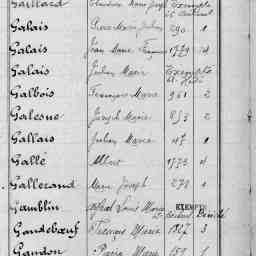 Gaillard Marie Joseph Exempté
Galais Pierre Marie Julien 290 1
Galais Jean Marie François 1779 4
Galais Julien Marie Exempté
Galbois François Marie 961 2
Galesne Joseph Marie 853 2
Gallais Julien Marie 47 1
Gallé Albert 1773 4
Gallerand Marie Joseph 278 1
Gamblin Alfred Louis Marie EXEMPTÉ
Gandebœuf François Marie 1307 3
Gandon Marie 159 1